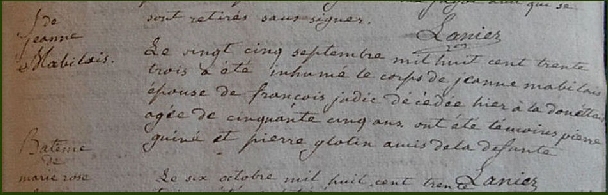 sont retirés sans signer.
Lanier
S de
Jeanne
Mabilais.
Le vingt cinq septembre mil huit cent trente
trois a été inhumé le corps de jeanne mabilais
epouse de françois judic décedée hier à la donettais
agée de cinquante cinq ans. ont été témoires pierre
guiné et pierre glotin amis de la defunte
Lanier
Bateme
de
marie rose
Le six octobre mil huit cent trente